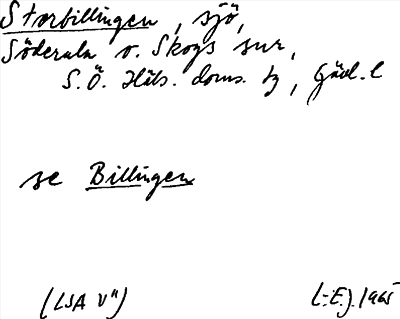 Storbillingen, sjö,
Söderala o. Skogs snr,
S.Ö. Häls. doms. tg, Gävl. l
se Billingen
(LSA V") (-E). 1965